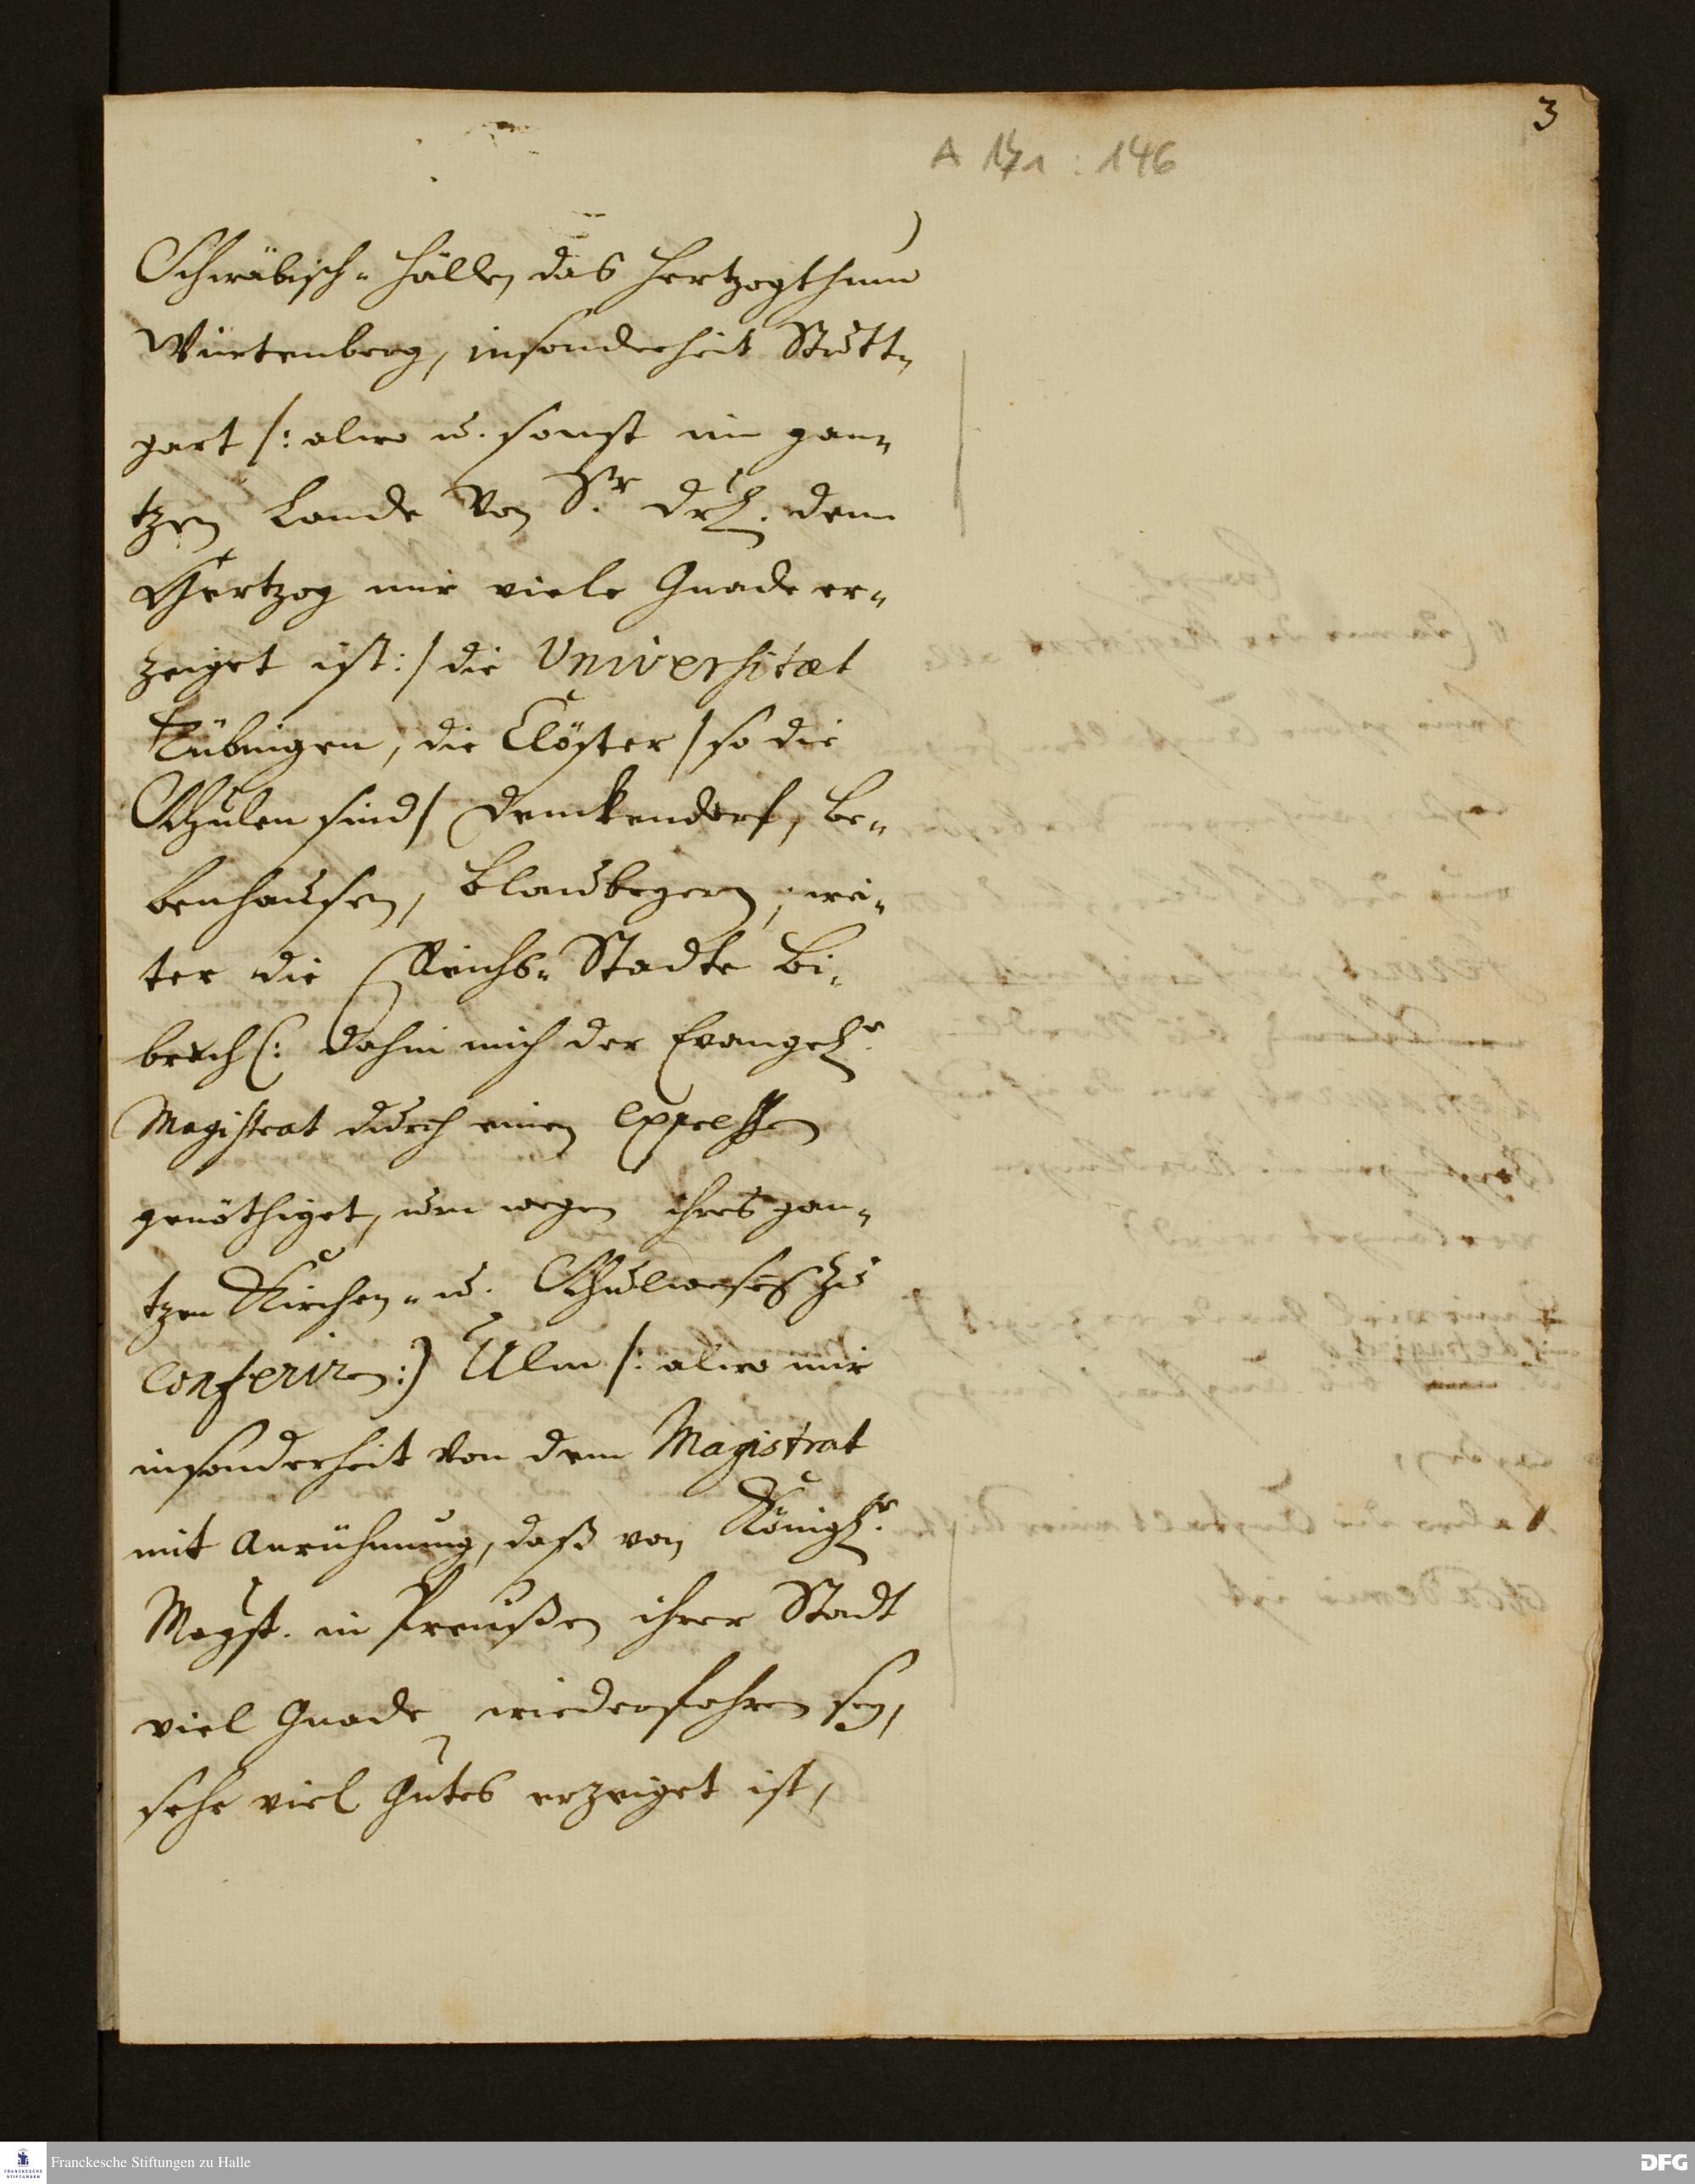 3
A 171 : 146
Schwäbisch-Hallen das Hertzogthum
Würtenberg, insonderheit Stutt-
gart /: alwo u. sonst im gan-
tzen Lande von Sr. Drl. dem
Hertzog mir viele Gnade er-
zeiget ist :/ die Universitæt
Tübingen, die Clöster / so die
Schulen sind / Denckendorf, Be-
benhausen, Blaubeyern, wei-
ter die Reichs-Stadte Bi-
berach (: dahin mich der Evangel.r
Magistrat durch einen Expressen
genöthiget, um wegen ihres gan-
tzen Kirchen- u. Schulwesens zu
conferiren :) Ulm /: alwo mir
insonderheit von dem Magistrat
mit Anrühmung, daß von Königl.r
Mayst. in Preußen ihrer Stadt
viel Gnade wiederfahren sey,
sehr viel Gutes erzeiget ist,
Franckesche Stiftungen zu Halle
DFG